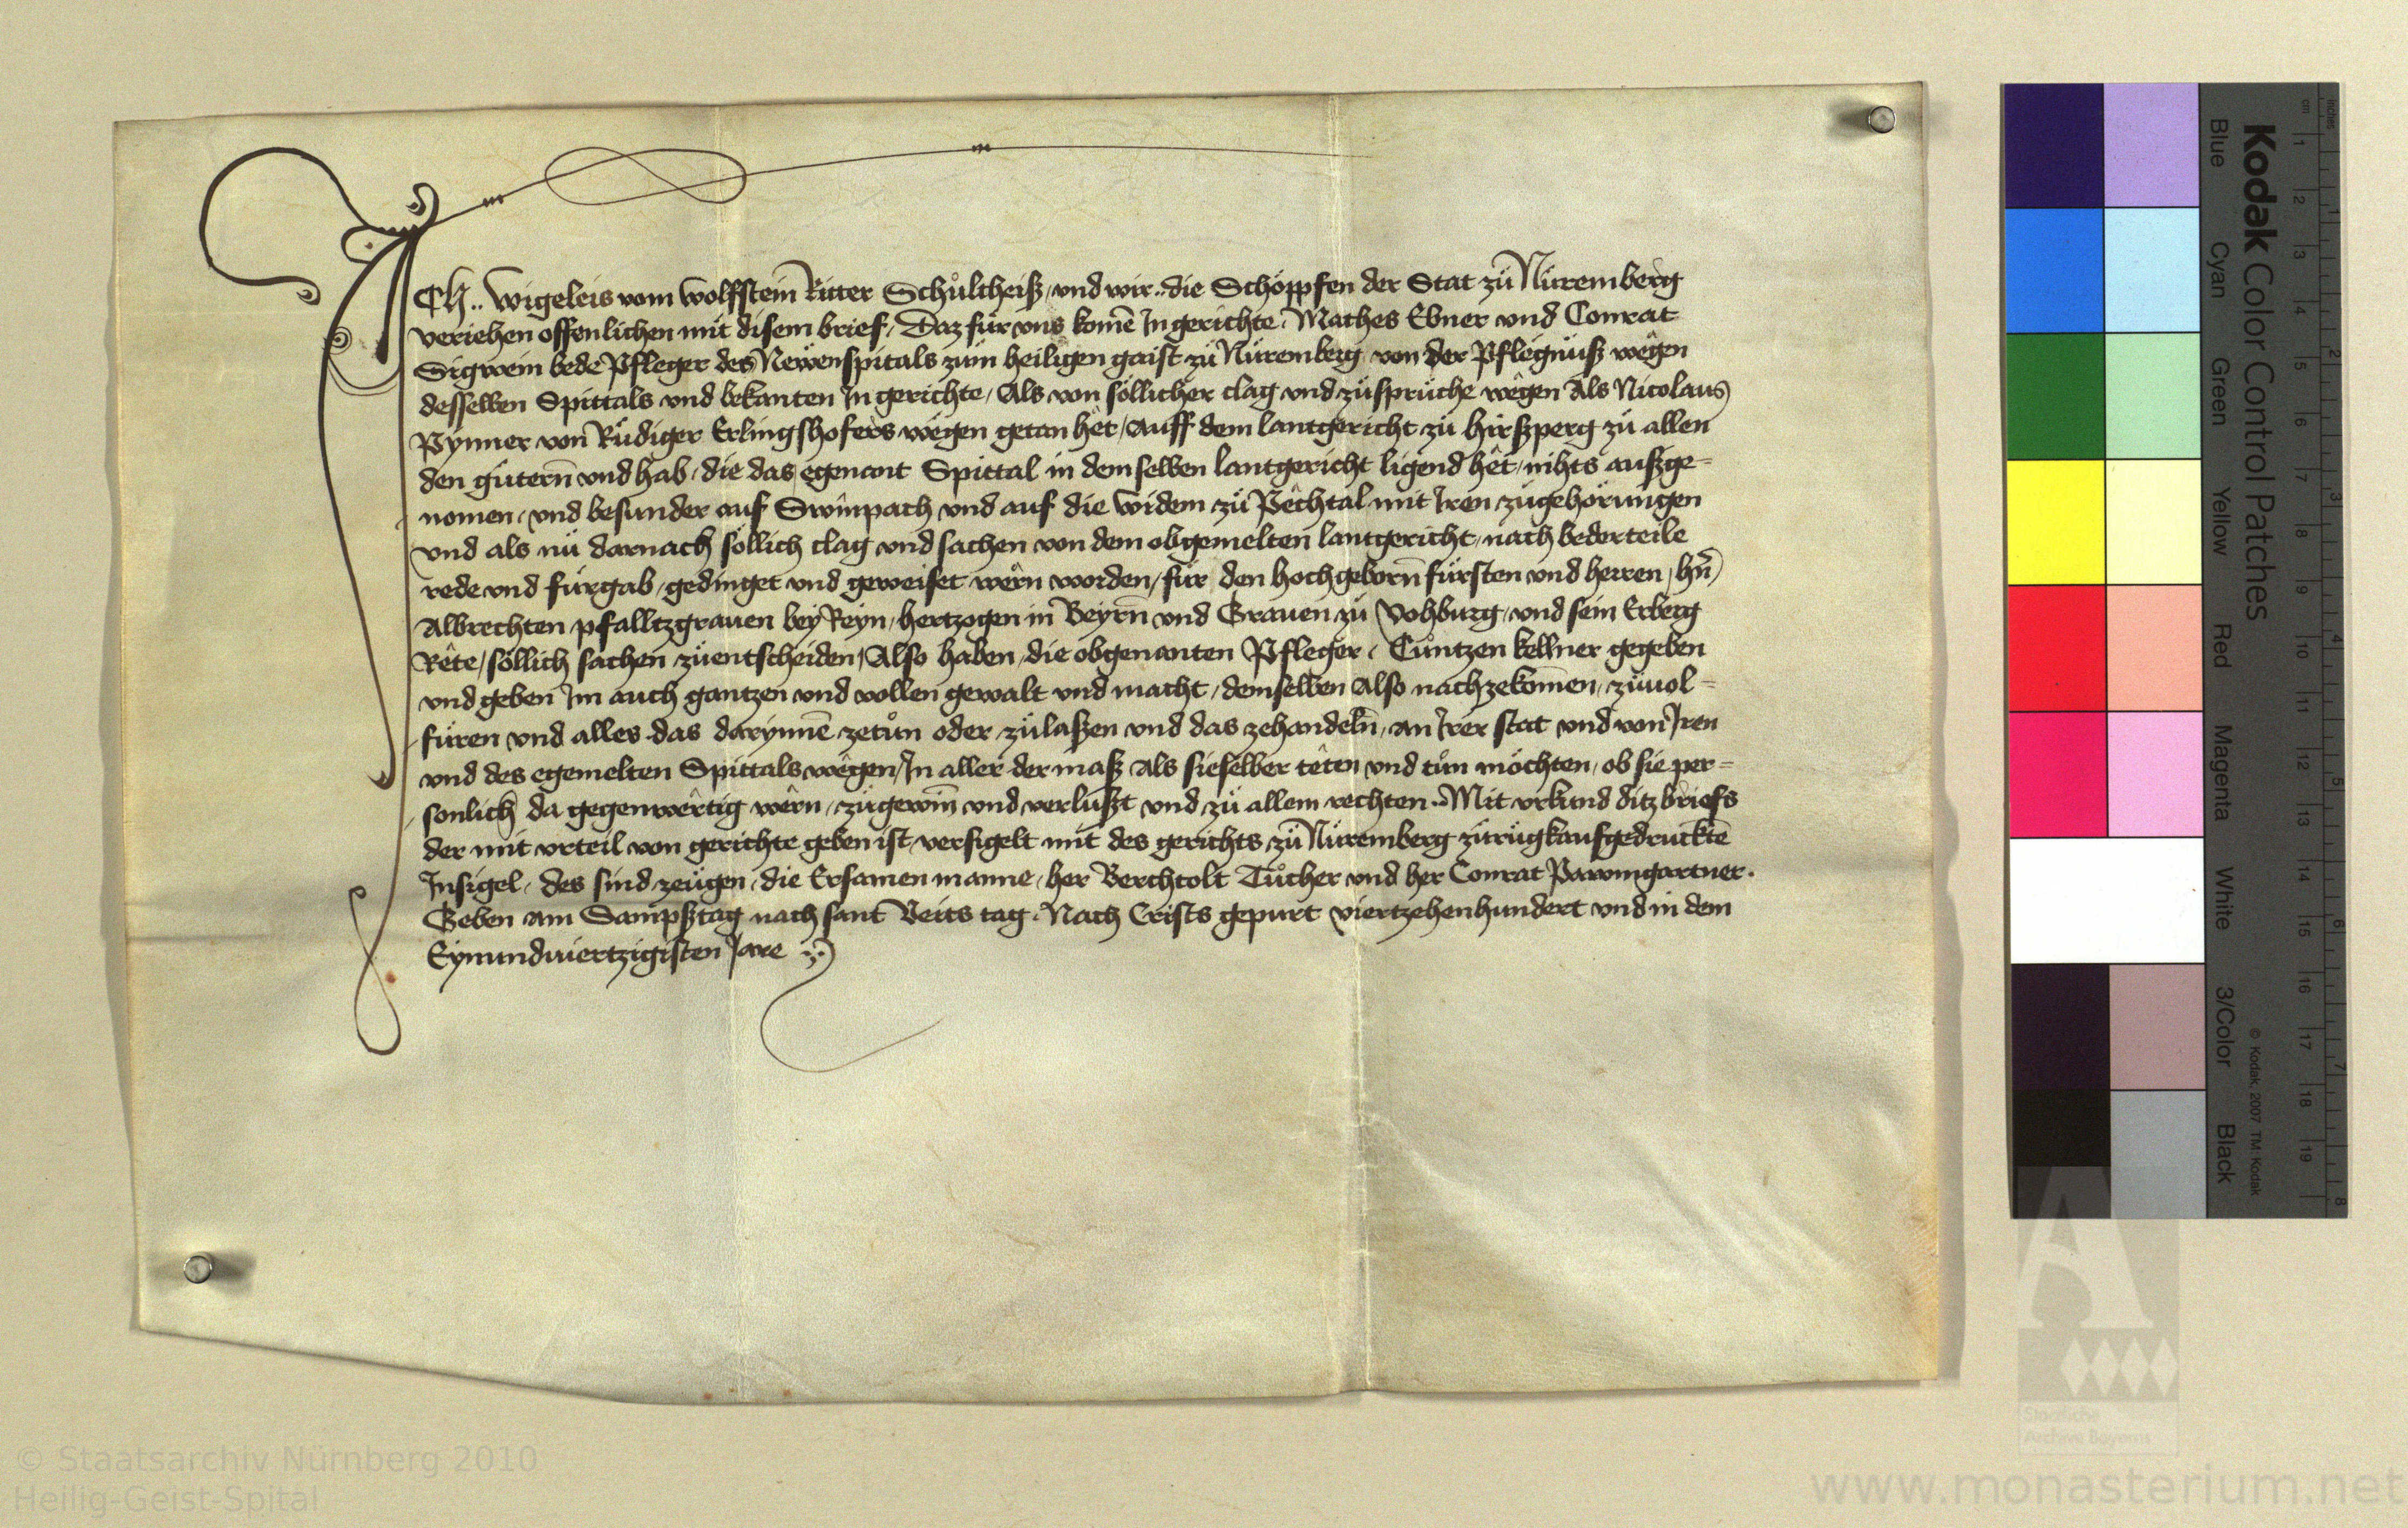 ICh .. Wigeleis vom Wolffstein Ritter Schůltheiß / vnd wir .. die Schöppfen der Stat zu Nüremberg
veriehen offenlichen mit disem brief / Daz für vns komē In gerichte / Mathes Ebner vnd Conrat
Sigwein bede Pfleger des Newenspitals zum heiligen gaist zü Nüremberg von der Pflegnüß wêgen
desselben Spittals vnd bekanten In gerichte / Als von söllicher clag vnd züsprüche wêgen Als Nicolaus
Pynner von Rüdiger Erlingshofers wêgen getan hêt / Auff dem lantgericht zü hirßperg zü allen
den gütern̄ vnd hab / die das egenant Spittal in demselben lantgericht ligend hêt / nihts außge=
nomen / vnd besunder auf Swinpach vnd auf die Widem zü Pêchtal mit Iren zügehörungen
vnd als nü darnach söllich clag vnd sachen von dem obgemelten lantgericht / nach bederteile
rede vnd fürgab / gedinget vnd geweiset wêrn worden / für den hochgeborn̄ fürsten vnd herren / hn̄
Albrechten pfalltzgrauen bey Reyn / hertzogen in Beyrn̄ vnd Grauen zü Vohburg / vnd sein Erberg
Rête / söllich sachen züentscheiden / Also haben / die obgenanten Pfleger / Cůntzen kellner gegeben
vnd geben Im auch gantzen vnd vollen gewalt vnd macht / demselben Also nachzekomen / züuol=
füren vnd alles das darynnē zetůn oder zülaßen vnd das zehandeln̄ / an Irer stat vnd von Iren
vnd des egemelten Spittals wêgen / In aller der maß als sieselber têten vnd tůn möchten / ob sie per=
sonlich da gegenwêrtig wêrn / zügewin̄ vnd verlußt vnd zü allem rechten .. Mit vrkund ditz briefs
der mit vrteil von gerichte geben ist / versigelt mit des gerichts zü Nüremberg zürügkaufgedrucktē
Insigel / des sind zeügen / die Ersamen manne / her Berchtolt Tůcher vnd her Conrat Pawmgartner .
Geben am Sampßtag nach sant Veits tag . Nach Crists gepurt viertzehenhundert vnd in dem
Eynundviertzigisten Jare
Kodak Color Control Patches
Blue Cyan Green Yellow Red Magenta White 3/Color Black
© Kodak, 2007 TM: Kodak
cm 1 2 3 4 5 6 7 8 9 10 11 12 13 14 15 16 17 18 19
inches 1 2 3 4 5 6 7 8
Staatliche
Archive Bayerns
© Staatsarchiv Nürnberg 2010
Heilig-Geist-Spital
www.monasterium.net